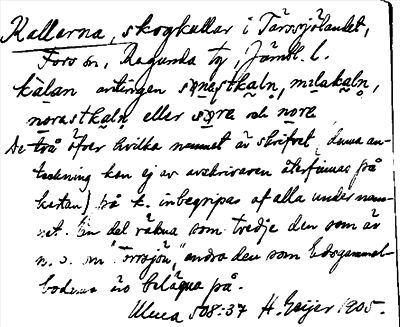 Kallarna, skogkullar i Tärnsjölandet,
Fors sn, Ragunda tg, Jämtl. l.
kälan antingen sønastkaln, milakaln,
norastkaln eller søre och nore
De två öfver hvilka namnet är skrifvet (denna an-
teckning kan ej av avskrivaren återfinnas på
kartan) på k. inbegripas af alla under nam-
net. En del räkna som tredje den som är
n. o. om Örrsjön, andra den som
bodarna äro belägna på.
Ulma 508:37 H. Geijer 1905.